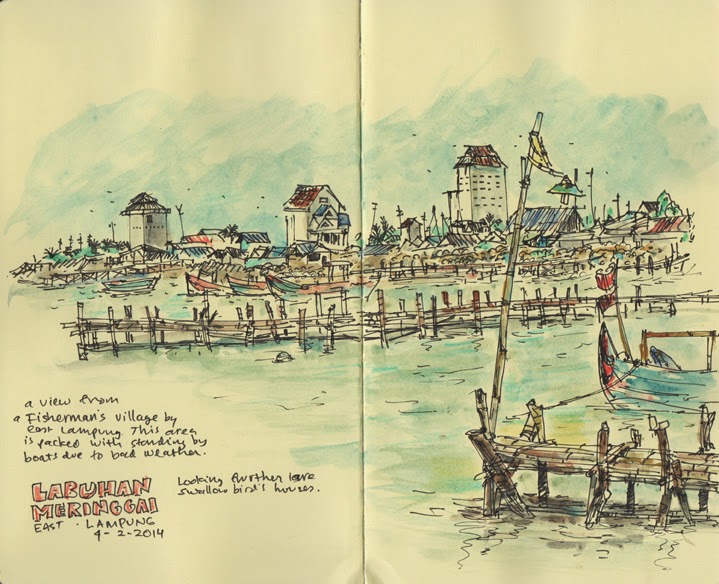 a view from
a Fisherman's village by
east Lampung. This area
is packed with standing by
boats due to bad weather.
Looking further are
swallow bird's houses.
LABUHAN
MERINGGAI
EAST · LAMPUNG
4-2-2014